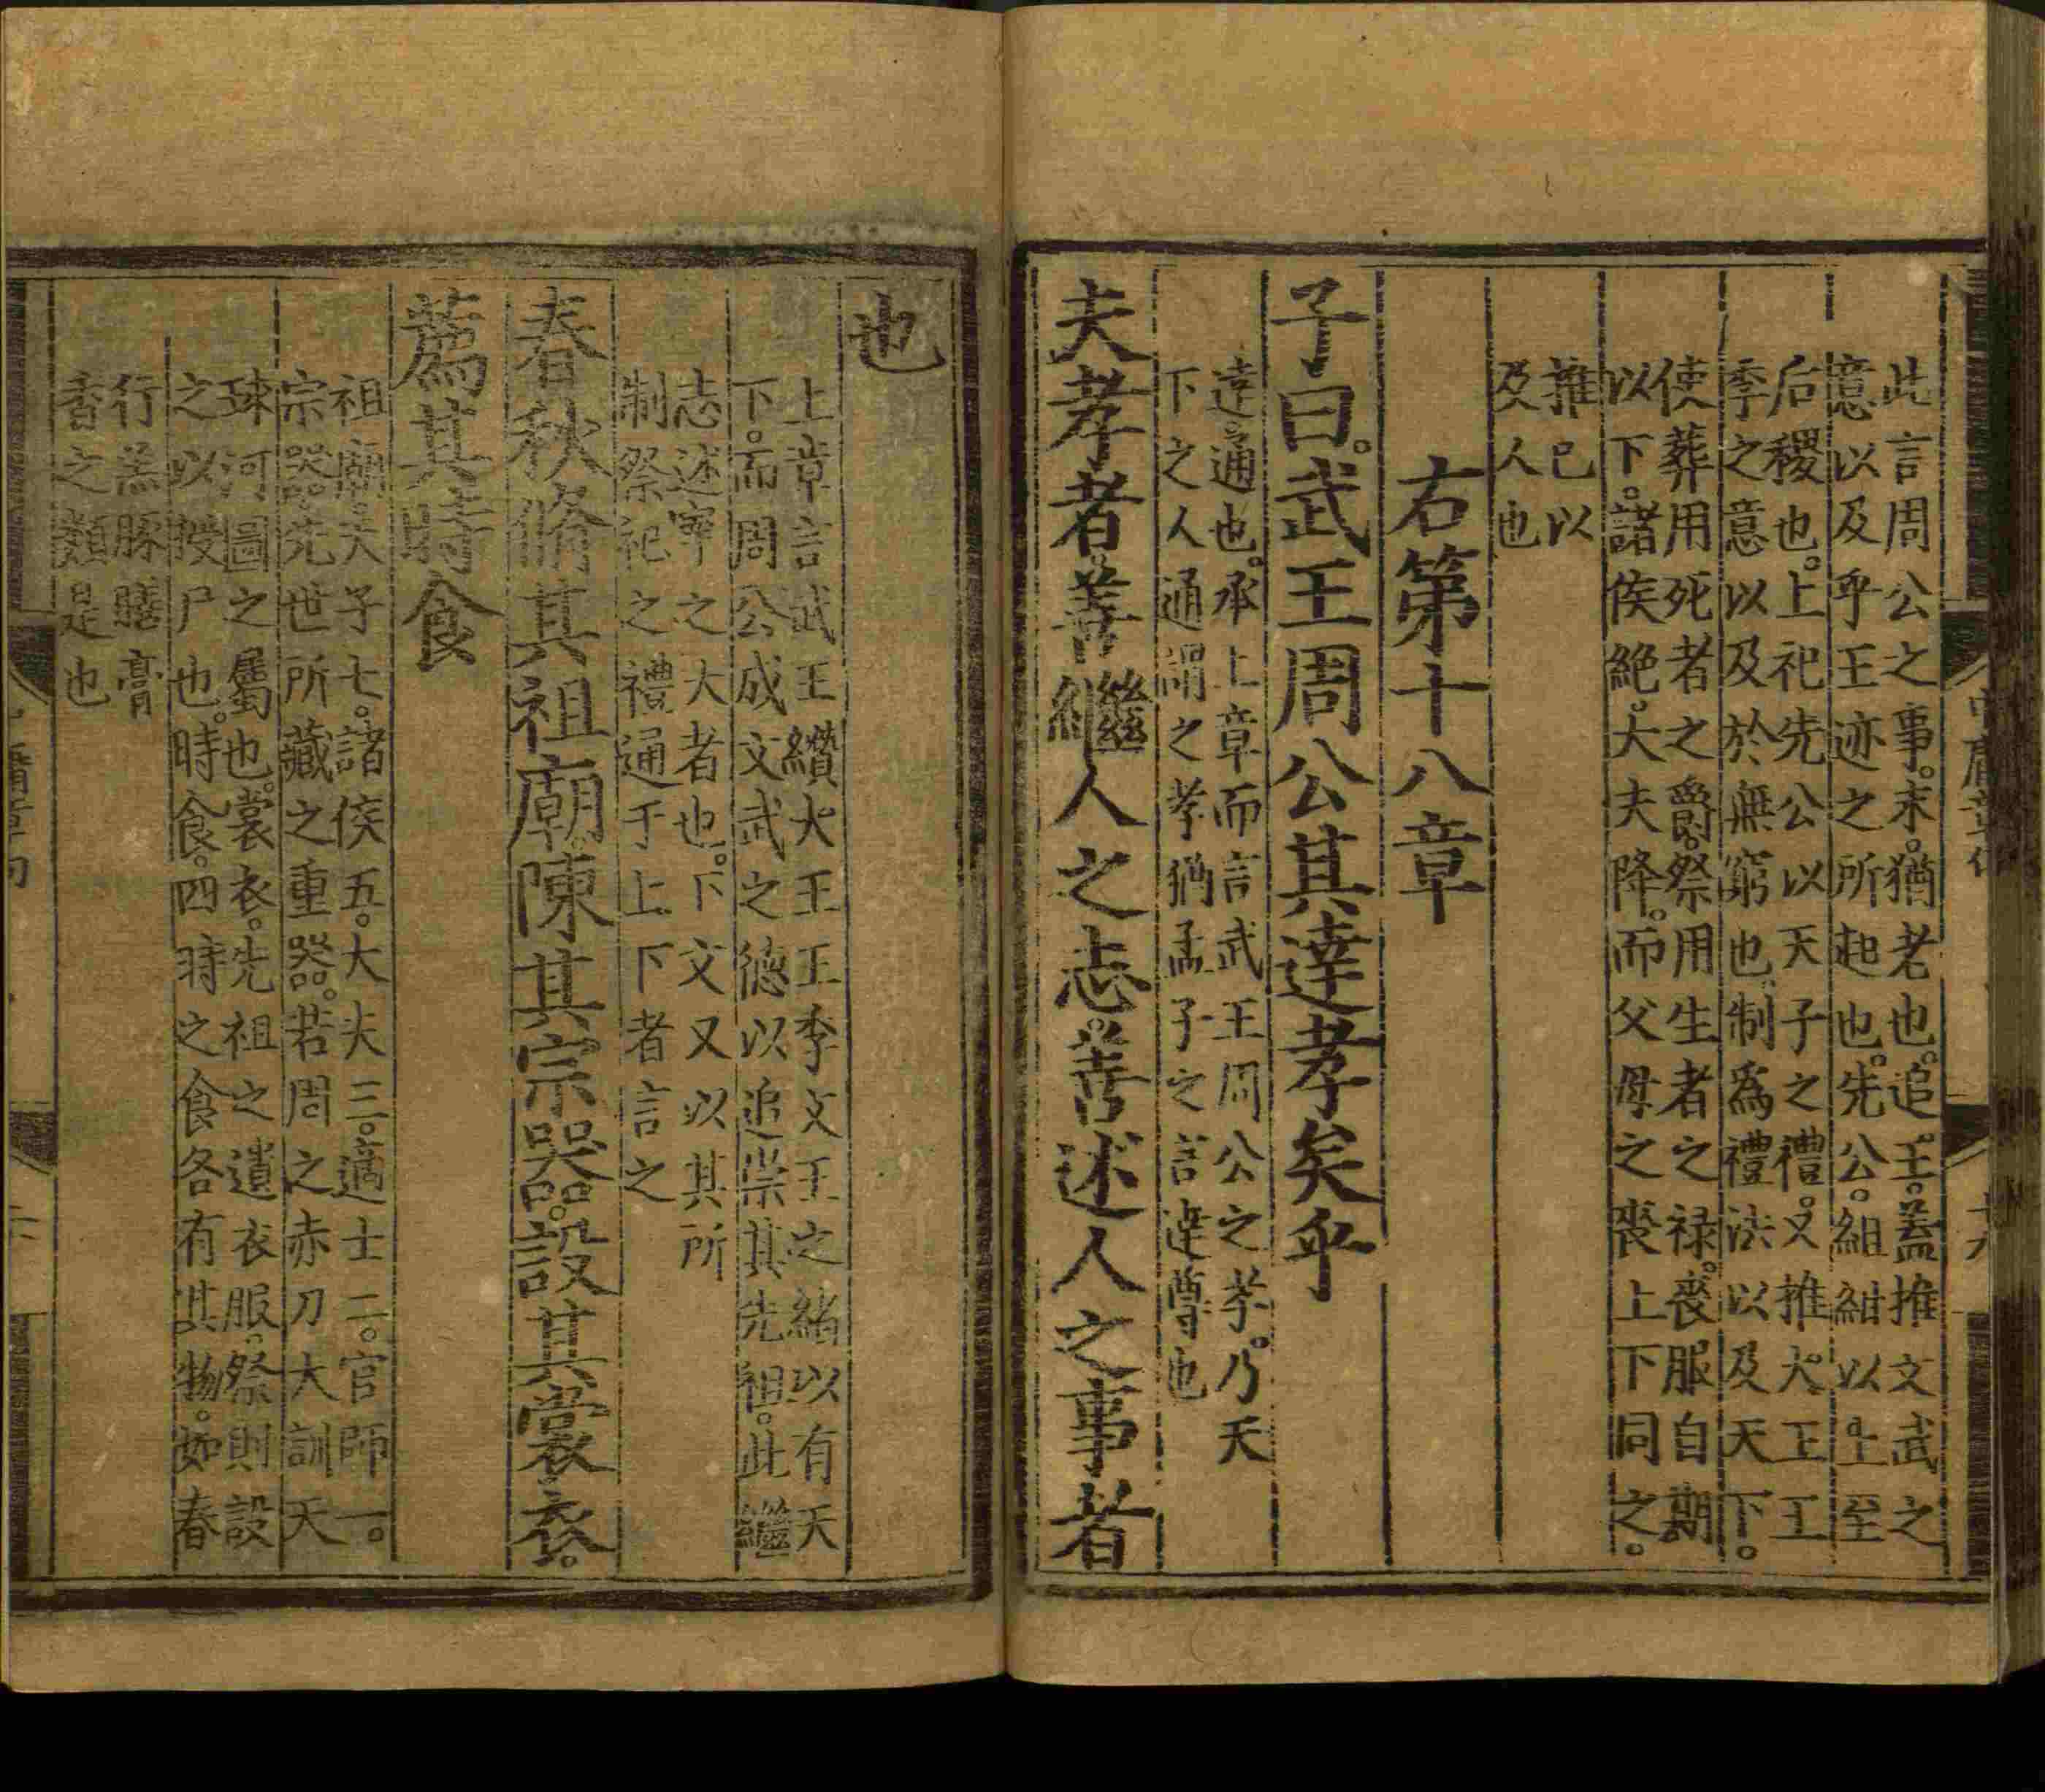 此言周公之事。末。猶老也。追王。蓋推文武之
意以及乎王迹之所起也。先公。組紺以上至
后稷也。上祀先公以天子之禮。又推大王王
季之意以及於無窮也。制爲禮法以及天下。
使葬用死者之爵。祭用生者之禄。喪服自期
以下。諸侯絶。大夫降。而父母之喪上下同之。
推己以
及人也
右第十八章
子曰。武王周公其達孝矣乎
達。通也。承上章而言武王周公之孝。乃天
下之人通謂之孝猶孟子之言達尊也
夫孝者。善繼人之志。善述人之事者
也
上章言武王纘大王王季文王之緒以有天
下。而周公成文武之德以追崇其先祖。此繼
志述事之大者也。下文又以其所
制祭祀之禮通于上下者言之
春秋脩其祖廟。陳其宗器。設其裳衣。
薦其時食
祖廟。天子七。諸侯五。大夫三。適士二。官師一。
宗器。先世所藏之重器。若周之赤刀大訓天
球河圖之屬也。裳衣。先祖之遺衣服。祭則設
之以授尸也。時食。四時之食各有其物。如春
行羔豚膳膏
香之類是也